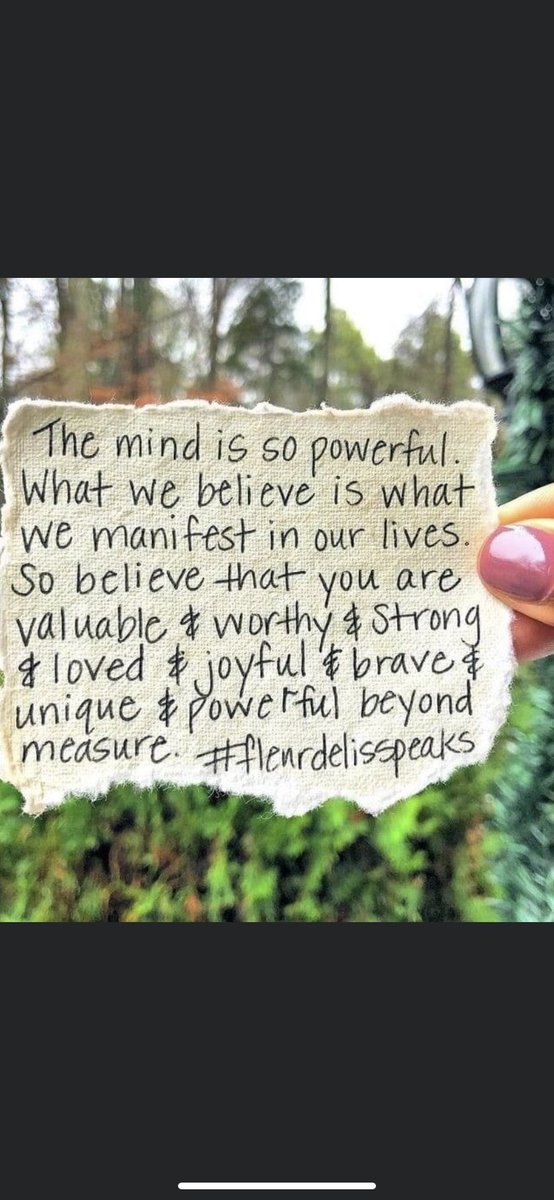 The mind is so powerful.
What we believe is what
we manifest in our lives.
So believe that you are
valuable & worthy & strong
& loved & joyful & brave &
unique & powerful beyond
measure. #fleurdelisspeaks